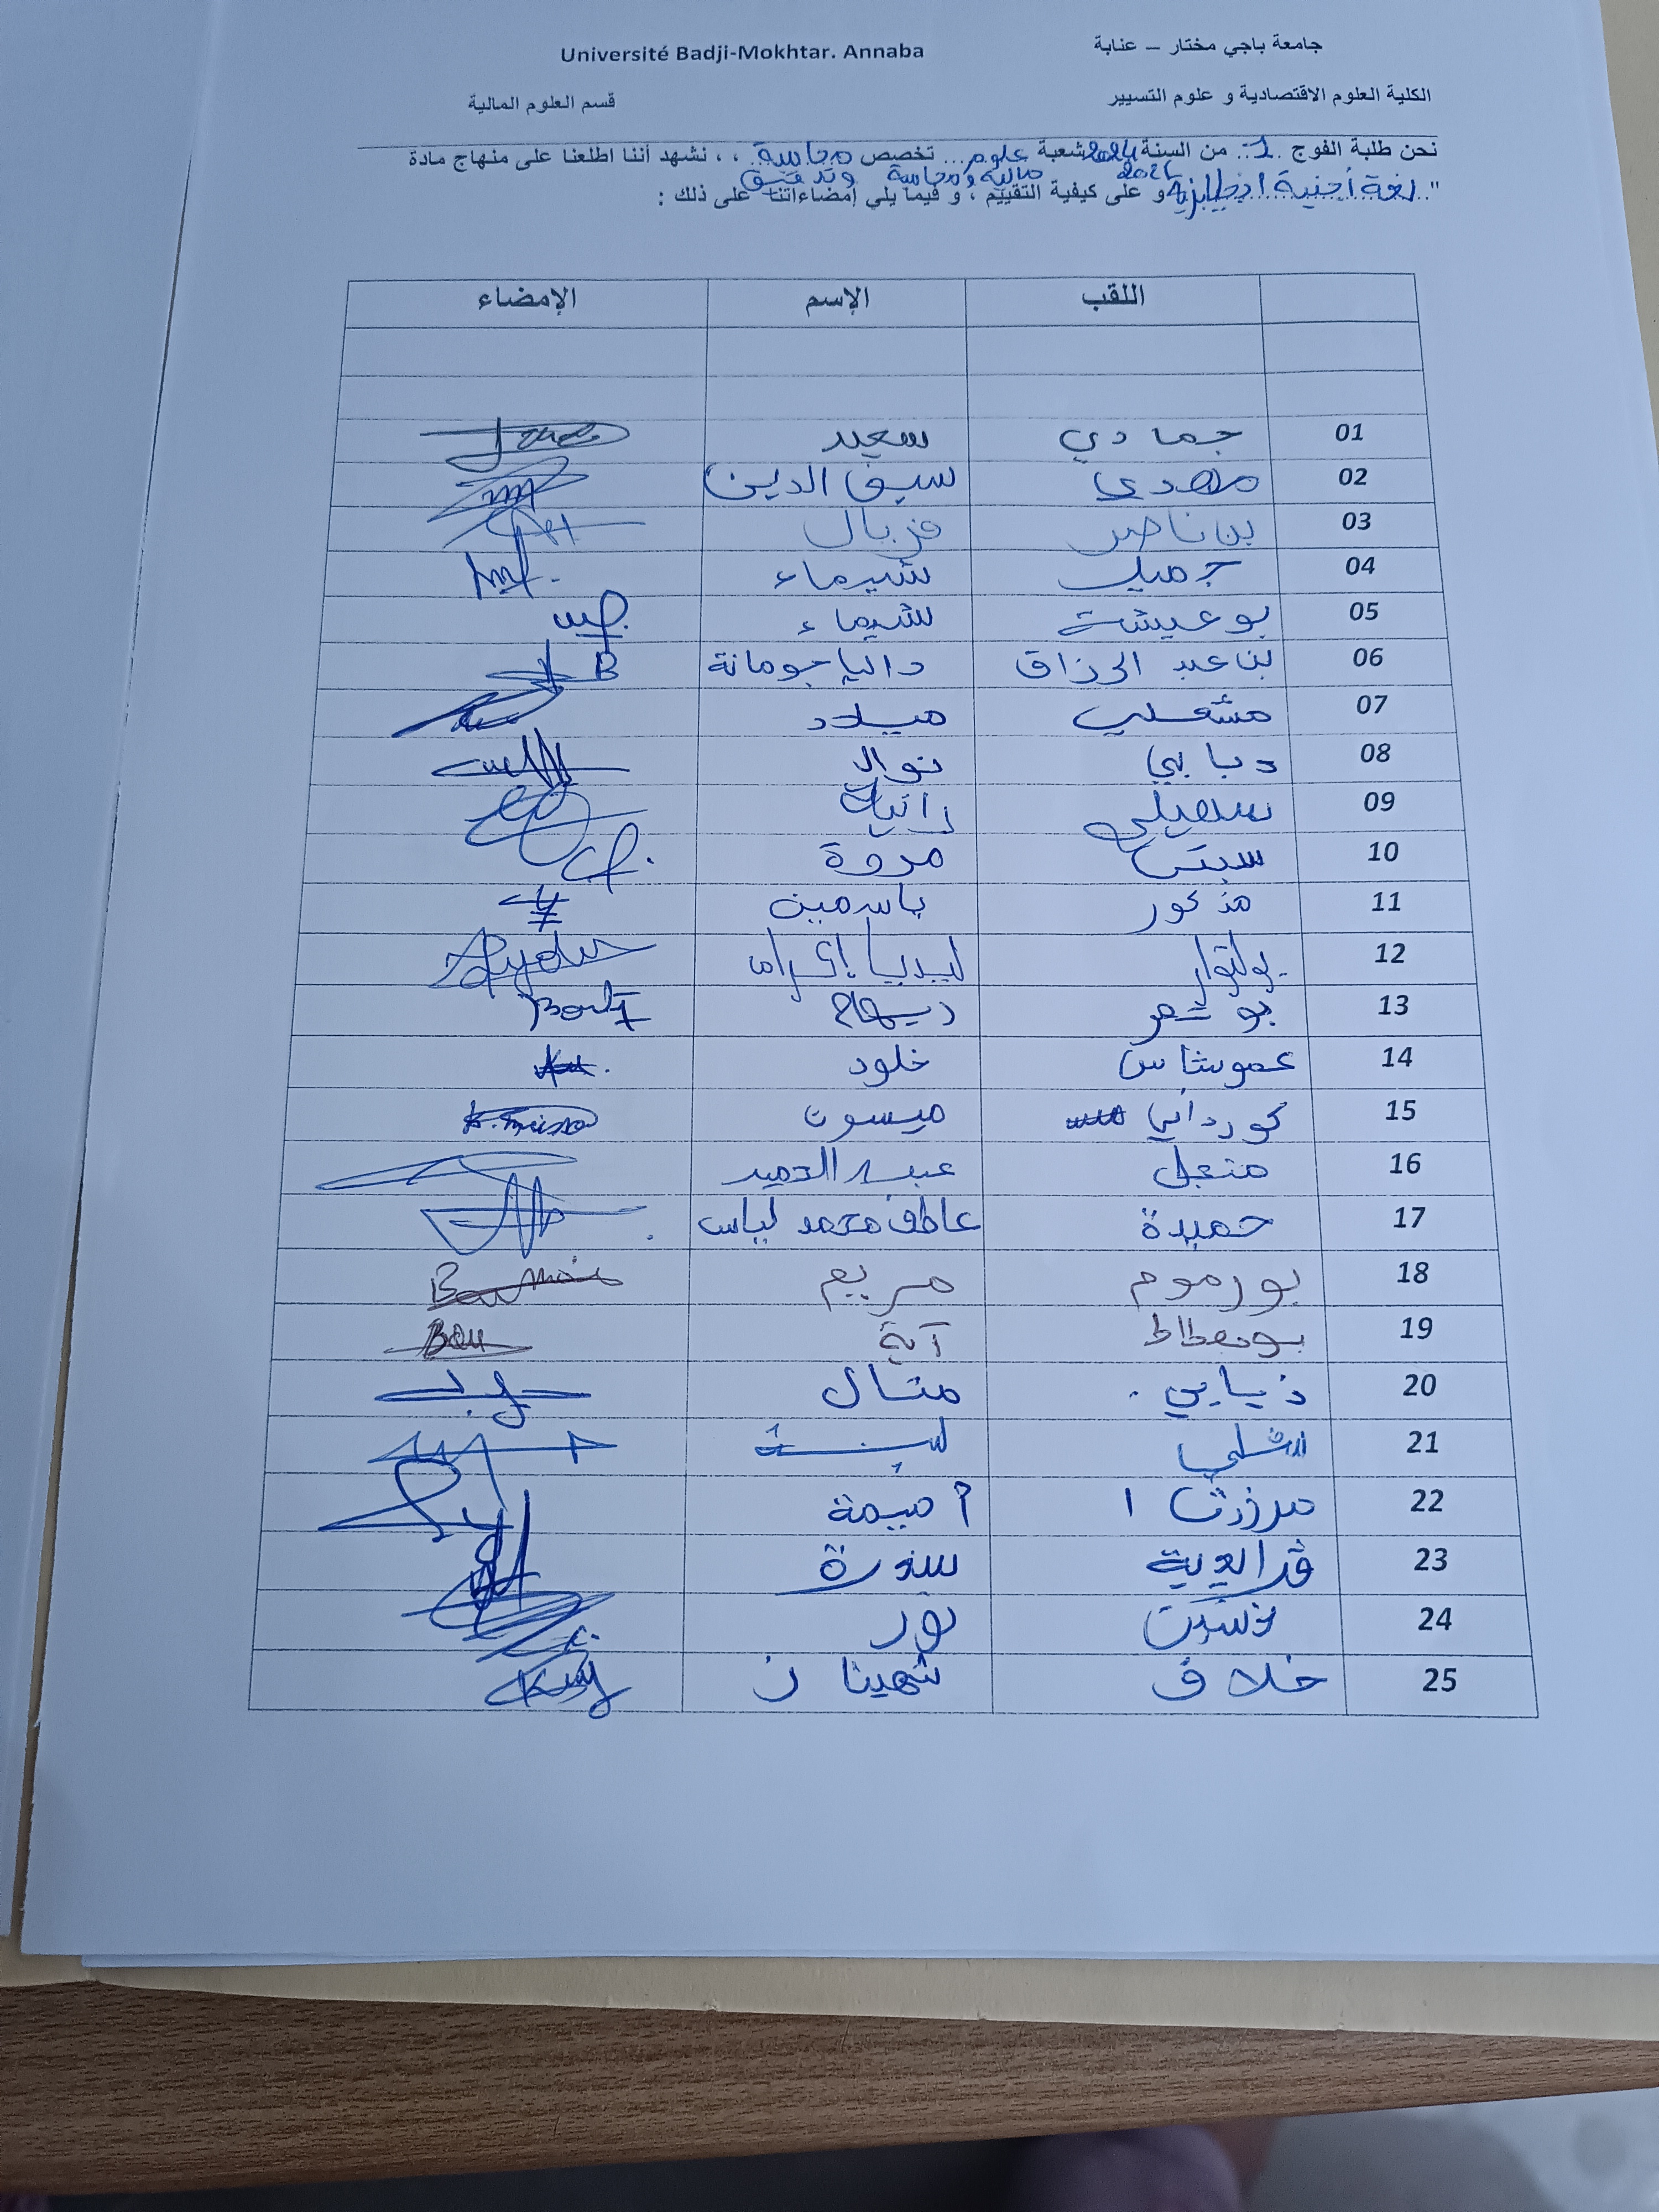 Université Badji-Mokhtar. Annaba
جامعة باجي مختار – عنابة
الكلية العلوم الاقتصادية و علوم التسيير
قسم العلوم المالية
نحن طلبة الفوج 1 من السنة 2024 شعبة علوم تخصص محاسبة ، ، نشهد أننا اطلعنا على منهاج مادة
مالية ومحاسبة وتدقيق
" لغة أجنبية انجليزية و على كيفية التقييم ، و فيما يلي إمضاءاتنا على ذلك :
اللقب الإسم الإمضاء
01 جمادي سعيد
02 مهدي سيف الدين
03 بن ناصر فريال
04 جميل شيماء
05 بوعيشة شيماء
06 بن عبد الرزاق داليا جومانة
07 مشعلي ميلاد
08 دبابي نوال
09 سهيلي رانية
10 سبتي مروة
11 مذكور ياسمين
12 ليديا إكرام
13 بوشعر ريهام
14 عموشاس خلود
15 كورداني ميسون
16 منجل عبد الحميد
17 حميدة عاطف محمد لياس
18 بورموم مريم
19 آية
20 ذيابي منال
21
22 أميمة
23
24 نور
25 خلاف شهيناز